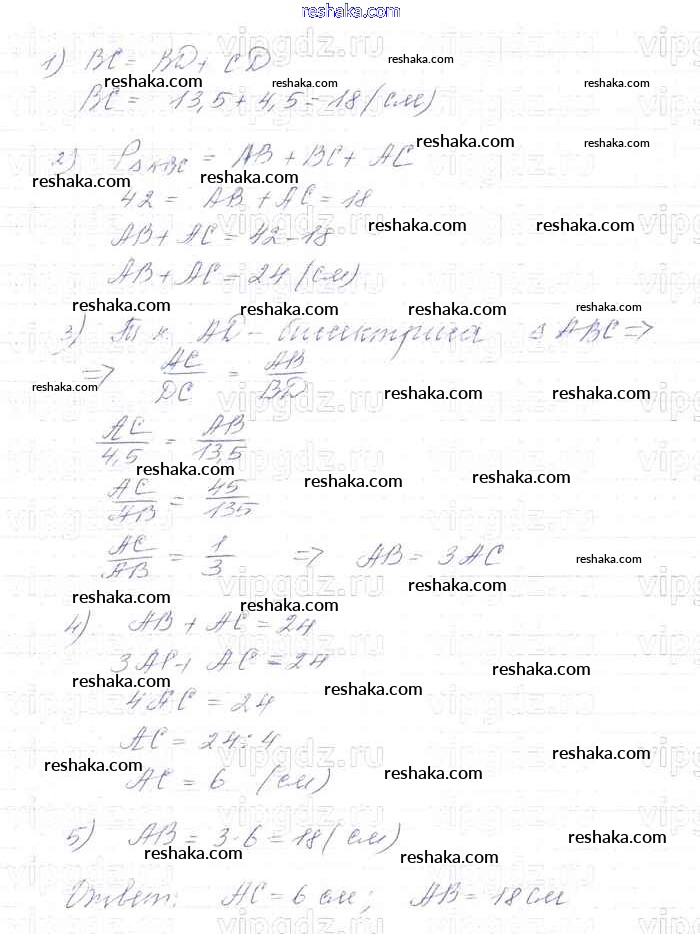 reshaka.com
1) BC = BD + CD
reshaka.com
BC = 13,5 + 4,5 = 18 (см)
2) P△ABC = AB + BC + AC
42 = AB + AC = 18
AB + AC = 42 - 18
AB + AC = 24 (см)
3) Т.к. AD - биссектриса △ ABC ⇒
⇒ AC/DC = AB/BD
AC/4,5 = AB/13,5
AC/AB = 45/135
AC/AB = 1/3 ⇒ AB = 3AC
4) AB + AC = 24
3AC + AC = 24
4AC = 24
AC = 24:4
AC = 6 (см)
5) AB = 3·6 = 18 (см)
Ответ: AC = 6 см; AB = 18 см
vipgdz.ru